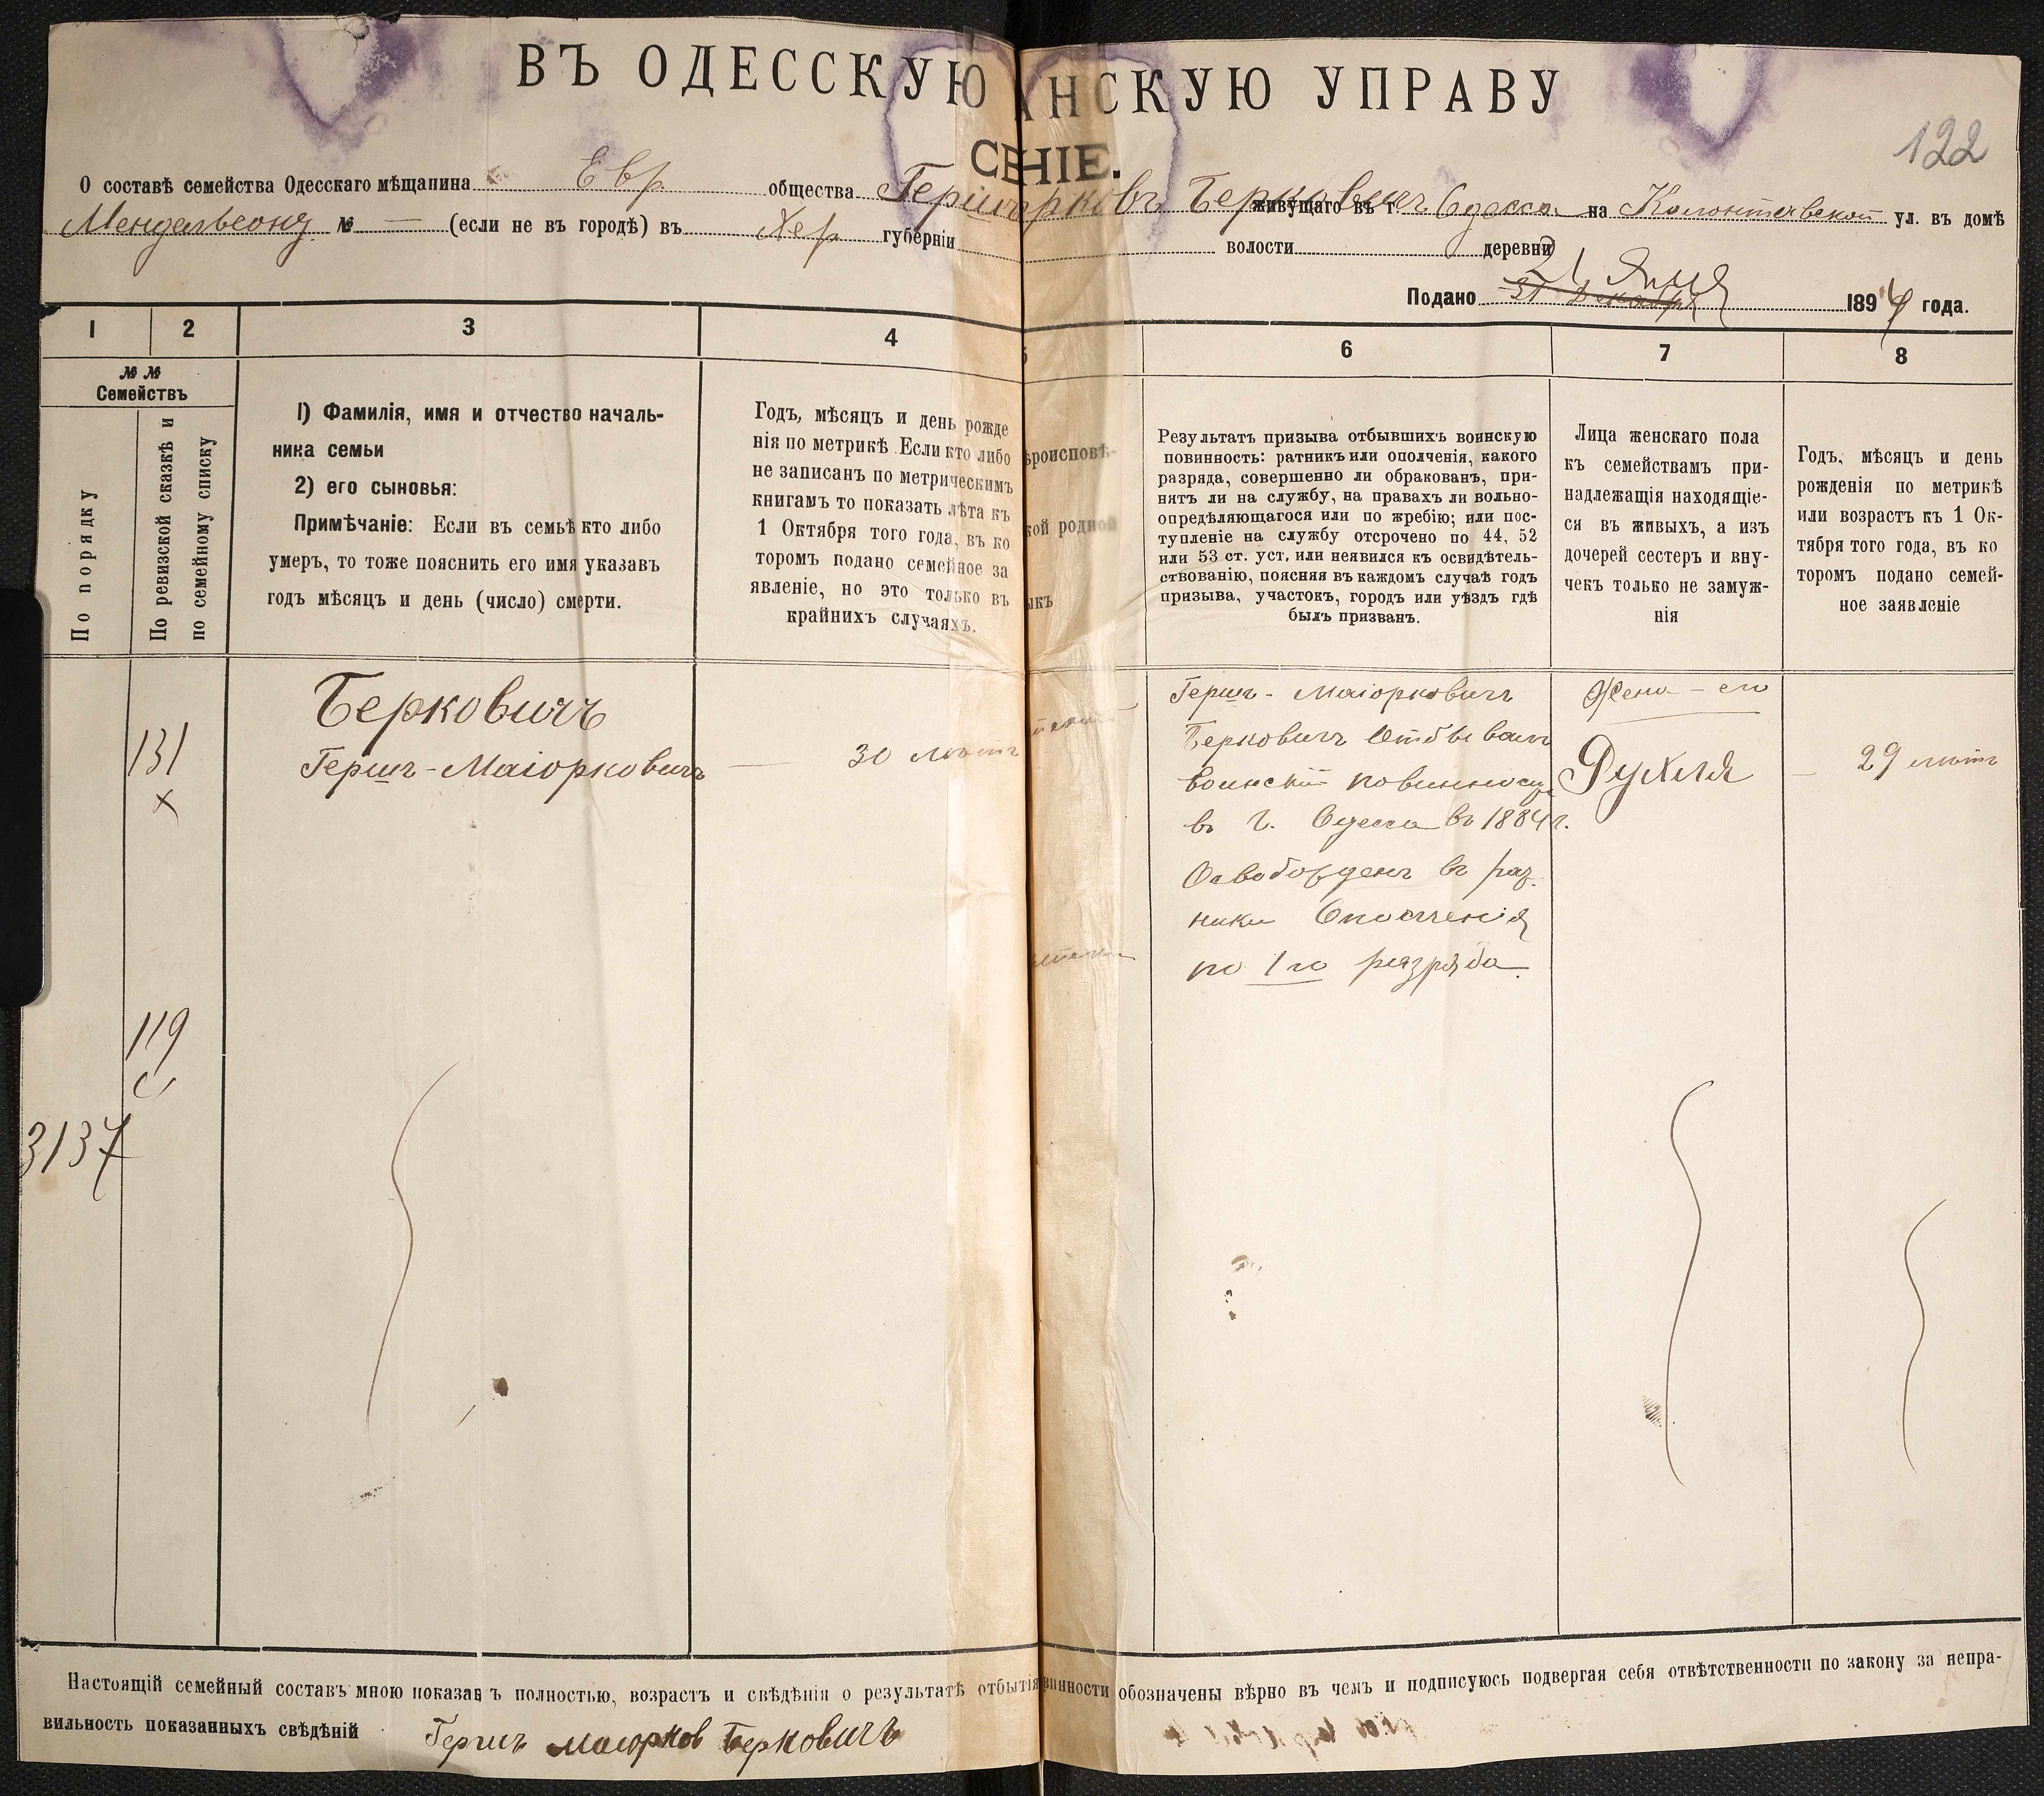 ВЪ ОДЕССКУЮ АНСКУЮ УПРАВУ
СЕНІЕ.
122
О составѣ семейства Одесскаго мѣщанина Евр. общества Герш Берковичъ живущаго въ г. Одесса на Колонтаевской ул. въ домѣ
Мендельсону № — (если не въ городѣ) въ Хер губерніи волости деревни
Подано 31 Декабря 21 Янв 1894 года.
1 2 3 4 5 6 7 8
№ № Семействъ
По порядку
По ревизской сказкѣ и по семейному списку
1) Фамилія, имя и отчество началь-
ника семьи
2) его сыновья:
Примѣчаніе: Если въ семьѣ кто либо
умеръ, то тоже пояснить его имя указавъ
годъ мѣсяцъ и день (число) смерти.
Годъ, мѣсяцъ и день рожде
нія по метрикѣ Если кто либо
не записанъ по метрическимъ
книгамъ то показать лѣта къ
1 Октября того года, въ ко
торомъ подано семейное за
явленіе, но это только въ
крайнихъ случаяхъ.
ѣроисповѣ-
кой родной
ыкъ
Результатъ призыва отбывшихъ воинскую
повинность: ратникъ или ополченія, какого
разряда, совершенно ли обракованъ, при-
нятъ ли на службу, на правахъ ли вольно-
опредѣляющагося или по жребію; или пос-
тупленіе на службу отсрочено по 44, 52
или 53 ст. уст. или неявился къ освидѣтель-
ствованію, поясняя въ каждомъ случаѣ годъ
призыва, участокъ, городъ или уѣздъ гдѣ
былъ призванъ.
Лица женскаго пола
къ семействамъ при-
надлежащія находящіе-
ся въ живыхъ, а изъ
дочерей сестеръ и вну-
чекъ только не замуж-
нія
Годъ, мѣсяцъ и день
рожденія по метрикѣ
или возрастъ къ 1 Ок-
тября того года, въ ко
торомъ подано семей-
ное заявленіе
131
х
Берковичъ
Гершъ-Маіорковичъ — 30 лѣтъ
Гершъ-Маіорковичъ
Берковичъ Отбывалъ
воинскій повинность
въ г. Одесса въ 1884 г.
Освобожденъ въ рат-
ники Ополченія
по 1го разряда.
Жена - его
Рухля — 29 лѣтъ
119
3137
Настоящій семейный составъ мною показанъ полностью, возрастъ и свѣдѣнія о результатѣ отбытія винности обозначены вѣрно въ чемъ и подписуюсь подвергая себя отвѣтственности по закону за непра-
вильность показанныхъ свѣдѣній Гершъ Маіорков Берковичъ